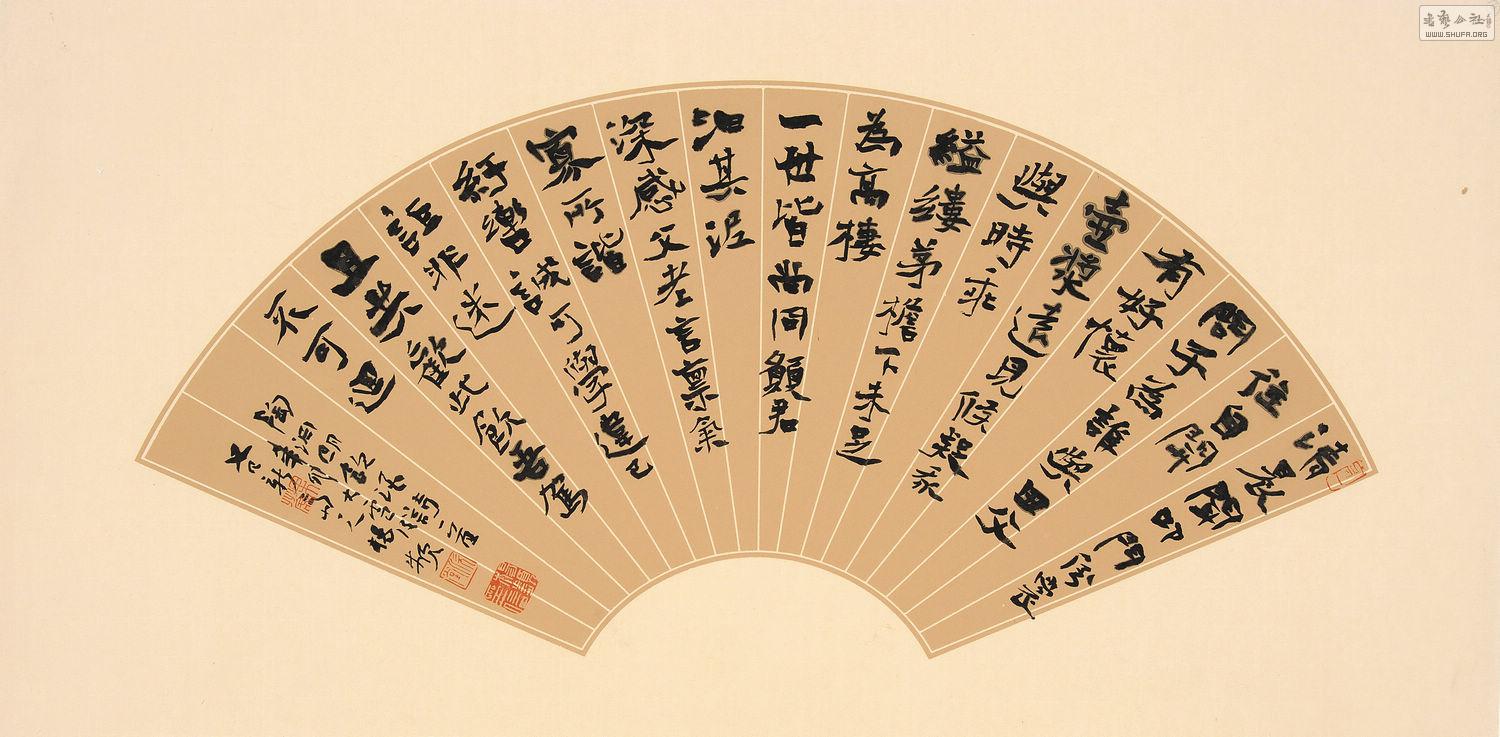 清晨聞叩門倒裳
往自開
問子為誰與田父
有好懷
壺漿遠見候疑我
與時乖
繿縷茅檐下未足
為高棲
一世皆尚同願君
汩其泥
深感父老言稟氣
寡所諧
紆轡誠可學違己
詎非迷
且共歡此飲吾駕
不可迴
陶淵明飲酒詩一首
辛卯大雪後
書藝公社
WWW.SHUFA.ORG